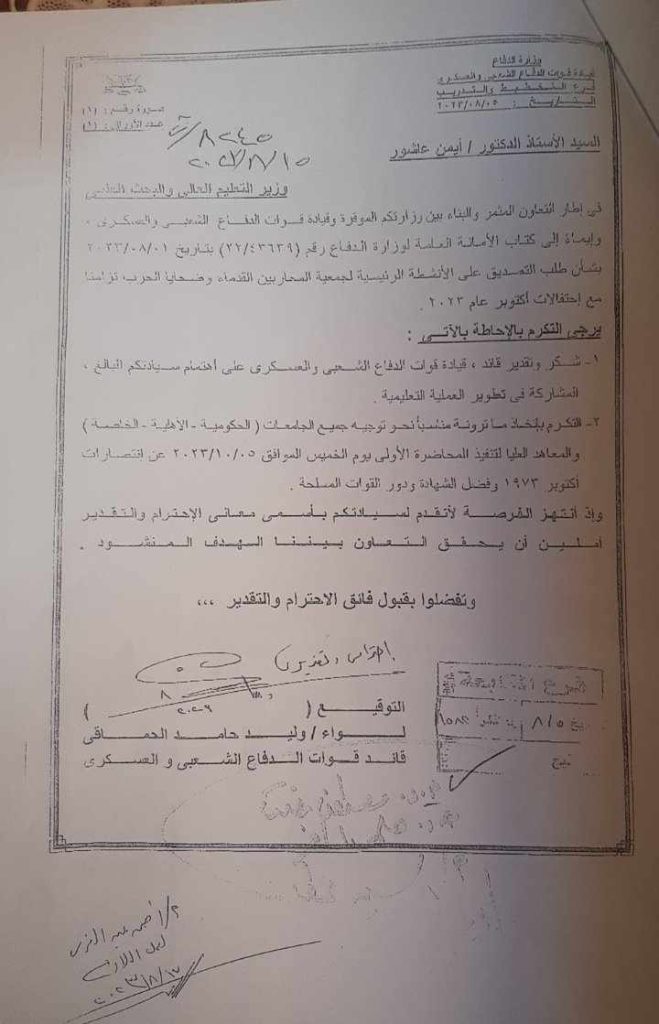 وزارة الدفاع
قيادة قوات الدفاع الشعبى والعسكرى
فرع التخطيط والتدريب
التاريخ : ٢٠٢٣/٠٨/٠٥
صورة رقم : (١)
عدد الأوراق : (١)
٢٠٢٣/٨/١٥
السيد الأستاذ الدكتور / أيمن عاشور
وزير التعليم العالى والبحث العلمى
فى إطار التعاون المثمر والبناء بين وزارتكم الموقرة وقيادة قوات الدفاع الشعبى والعسكرى ،
وإيماءً إلى كتاب الأمانة العامة لوزارة الدفاع رقم (٢٢/٤٣٦٣٩) بتاريخ ٢٠٢٣/٠٨/٠١
بشأن طلب التصديق على الأنشطة الرئيسية لجمعية المحاربين القدماء وضحايا الحرب تزامناً
مع إحتفالات أكتوبر عام ٢٠٢٣ .
يرجى التكرم بالإحاطة بالآتى :
١- شكر وتقدير قائد ، قيادة قوات الدفاع الشعبى والعسكرى على أهتمام سيادتكم البالغ ،
المشاركة فى تطوير العملية التعليمية .
٢- التكرم بإتخاذ ما ترونة مناسباً نحو توجيه جميع الجامعات ( الحكومية - الاهلية - الخاصة )
والمعاهد العليا لتنفيذ المحاضرة الأولى يوم الخميس الموافق ٢٠٢٣/١٠/٠٥ عن انتصارات
أكتوبر ١٩٧٣ وفضل الشهادة ودور القوات المسلحة .
وإذ أنتهز الفرصة لأتقدم لسيادتكم بأسمى معانى الإحترام والتقدير
أملين أن يحقق التعاون بيننا الهدف المنشود .
وتفضلوا بقبول فائق الاحترام والتقدير ،،،
التوقيع ( )
لواء / وليد حامد الحماقى
قائد قوات الدفاع الشعبى و العسكرى
٢٠٢٣/٨/١٧